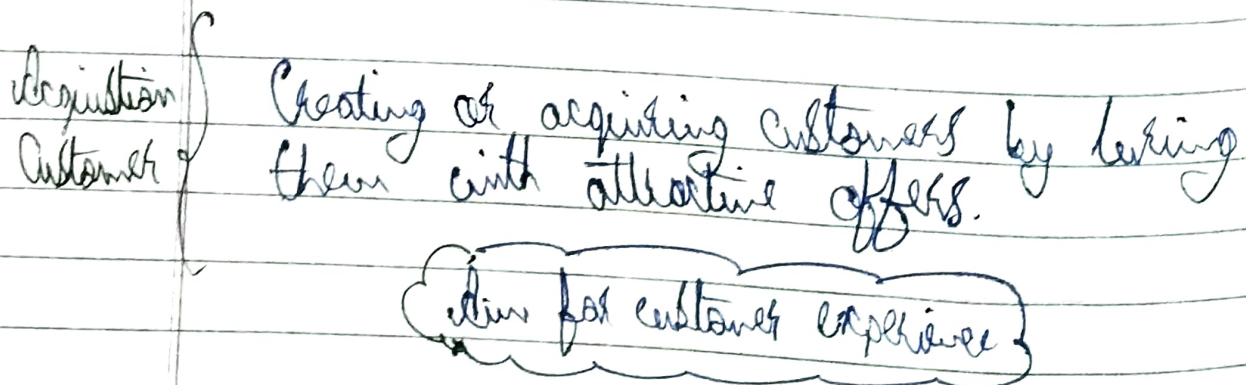 Acquistion
Customer
Creating or acquiring customers by luring
them with attractive offers.
Aim for customer experience